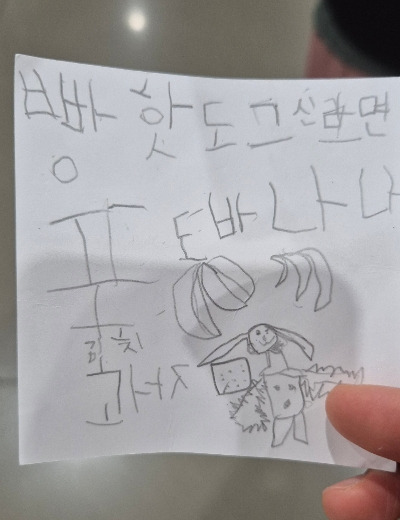 빵 핫도그 신라면
포도 바나나
과자